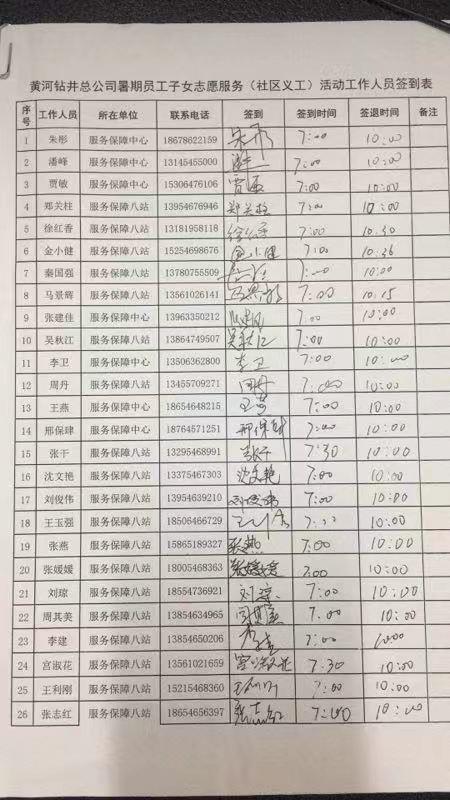 黄河钻井总公司暑期员工子女志愿服务（社区义工）活动工作人员签到表
序号 工作人员 所在单位 联系电话 签到 签到时间 签退时间 备注
1 朱彤 服务保障中心 18678622159 朱彤 7:00 10:00
2 潘峰 服务保障中心 13145455000 7:00 10:00
3 贾敏 服务保障中心 15306476106 贾敏 7:00 10:00
4 郑关柱 服务保障八站 13954676946 郑关柱 7:00 10:00
5 徐红香 服务保障八站 13181958118 7:00 10:30
6 金小健 服务保障八站 15254698676 金小健 7:00 10:36
7 秦国强 服务保障八站 13780755509 7:00 10:00
8 马景辉 服务保障八站 13561026141 7:00 10:15
9 张建佳 服务保障中心 13963350212 7:00 10:00
10 吴秋江 服务保障八站 13864749507 吴秋江 7:00 10:00
11 李卫 服务保障中心 13506362800 李卫 7:00 10:00
12 周丹 服务保障八站 13455709271 周丹 7:00 10:00
13 王燕 服务保障中心 18654648215 王燕 7:00 10:00
14 邢保肂 服务保障中心 18764571251 7:00 10:00
15 张干 服务保障八站 13295468991 张干 7:30 10:00
16 沈文艳 服务保障八站 13375467303 沈文艳 7:00 10:00
17 刘俊伟 服务保障八站 13954639210 刘俊伟 7:00 10:00
18 王玉强 服务保障八站 18506466729 7:00 10:00
19 张燕 服务保障八站 15865189327 张燕 7:00 10:00
20 张媛媛 服务保障八站 18005468363 张媛媛 7:00 10:00
21 刘琼 服务保障八站 18554736921 刘琼 7:00 10:00
22 周其美 服务保障八站 13854634965 周其美 7:00 10:00
23 李建 服务保障八站 13854650206 李建 7:00 10:00
24 宫淑花 服务保障八站 13561021659 宫淑花 7:30 10:00
25 王利刚 服务保障八站 15215468360 王利刚 7:00 10:00
26 张志红 服务保障八站 18654656397 张志红 7:00 10:00